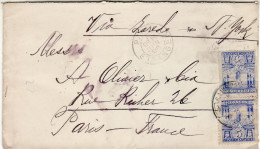 Via Laredo - N. York
Messrs
A Olivier & Cia
Rue Richer 26
Paris - France